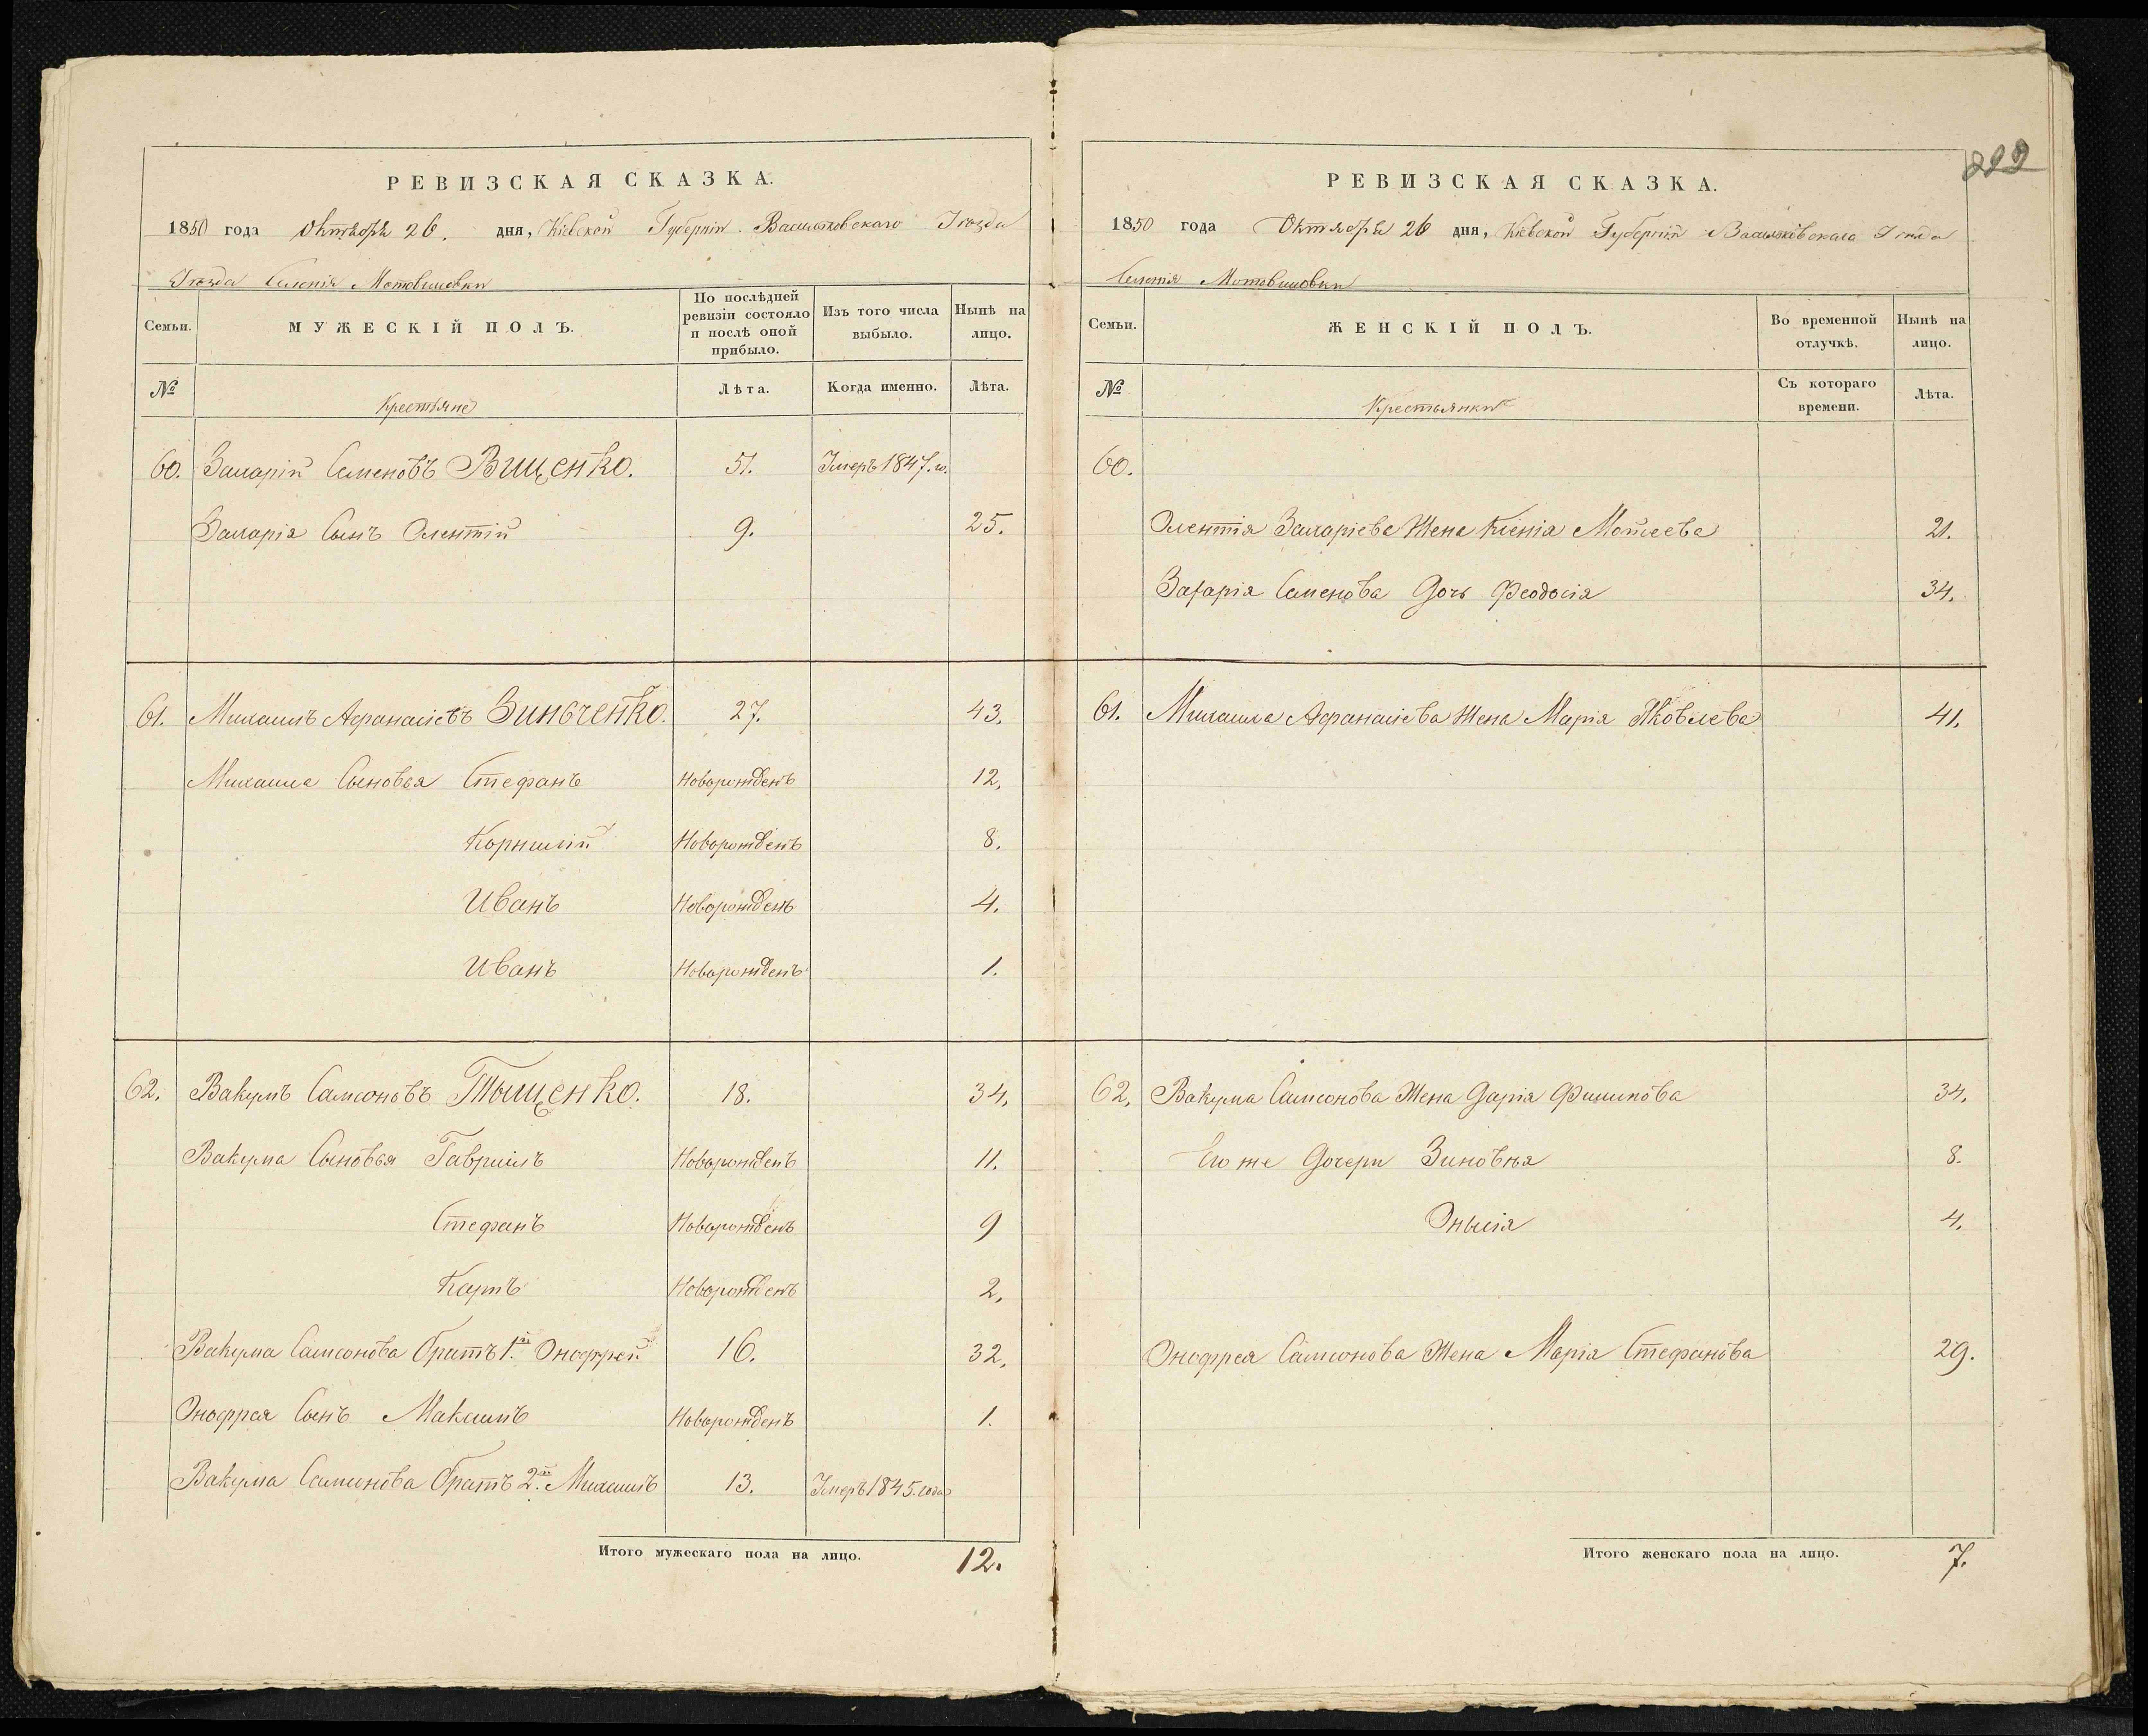 РЕВИЗСКАЯ СКАЗКА.
1850 года Октября 26. дня, Кіевской Губерніи Васильковскаго Уѣзда
Уѣзда Селенія Мотовиловки
Семьи. МУЖЕСКІЙ ПОЛЪ. По послѣдней ревизіи состояло и послѣ оной прибыло. Изъ того числа выбыло. Нынѣ на лицо.
№ Крестьяне Лѣта. Когда именно. Лѣта.
60. Захарій Семеновъ Вищенко. 51. Умеръ 1847. г.
Захарія Сынъ Олентій 9. 25.
61. Михаилъ Афанасіевъ Зинченко. 27. 43.
Михаила Сыновья Стефанъ Новорожденъ 12.
Корнилій Новорожденъ 8.
Иванъ Новорожденъ 4.
Иванъ Новорожденъ 1.
62. Вакумъ Самсоновъ Тыщенко. 18. 34.
Вакума Сыновья Гавриилъ Новорожденъ 11.
Стефанъ Новорожденъ 9
Карпъ Новорожденъ 2.
Вакума Самсонова братъ 1й. Онофрей 16. 32.
Онофрея Сынъ Максимъ Новорожденъ 1.
Вакума Самсонова братъ 2й. Михаилъ 13. Умеръ 1845. года
Итого мужескаго пола на лицо. 12.
РЕВИЗСКАЯ СКАЗКА.
1850 года Октября 26 дня, Кіевской Губерніи Васильковскаго Уѣзда
Селенія Мотовиловки
Семьи. ЖЕНСКІЙ ПОЛЪ. Во временной отлучкѣ. Нынѣ на лицо.
№ Крестьянки Съ котораго времени. Лѣта.
60.
Олентія Захаріева Жена Ксенія Моисеева 21.
Захарія Семенова Дочь Феодосія 34.
61. Михаила Афанасіева Жена Марія Яковлева 41.
62. Вакума Самсонова Жена Дарія Филипова 34.
Его же Дочери Зиновья 8.
Онысія 4.
Онофрея Самсонова Жена Марія Стефанова 29.
Итого женскаго пола на лицо. 7.